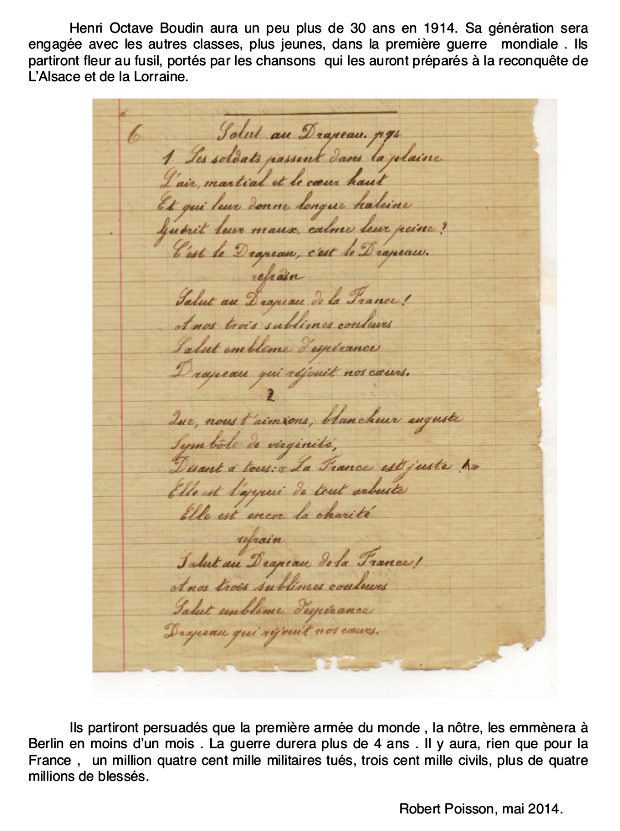 Henri Octave Boudin aura un peu plus de 30 ans en 1914. Sa génération sera
engagée avec les autres classes, plus jeunes, dans la première guerre mondiale . Ils
partiront fleur au fusil, portés par les chansons qui les auront préparés à la reconquête de
L'Alsace et de la Lorraine.
6 Salut au Drapeau. pas
1 Les soldats passent dans la plaine
L'air, martial et le cœur haut
Et qui leur donne longue haleine
Guérit leur maux, calme leur peine ?
C'est le Drapeau, c'est le Drapeau.
refrain
Salut au Drapeau de la France !
A nos trois sublimes couleurs
Salut emblème d'espérance
Drapeau qui réjouit nos cœurs.
2
Que, nous t'aimons, blancheur auguste
Symbôle de virginité,
Disant à tous: « La France est juste ! »
Elle est l'appui de tout arbuste
Elle est encor la charité
refrain
Salut au Drapeau de la France !
A nos trois sublimes couleurs
Salut emblème d'espérance
Drapeau qui réjouit nos cœurs.
Ils partiront persuadés que la première armée du monde , la nôtre, les emmènera à
Berlin en moins d'un mois . La guerre durera plus de 4 ans . Il y aura, rien que pour la
France , un million quatre cent mille militaires tués, trois cent mille civils, plus de quatre
millions de blessés.
Robert Poisson, mai 2014.